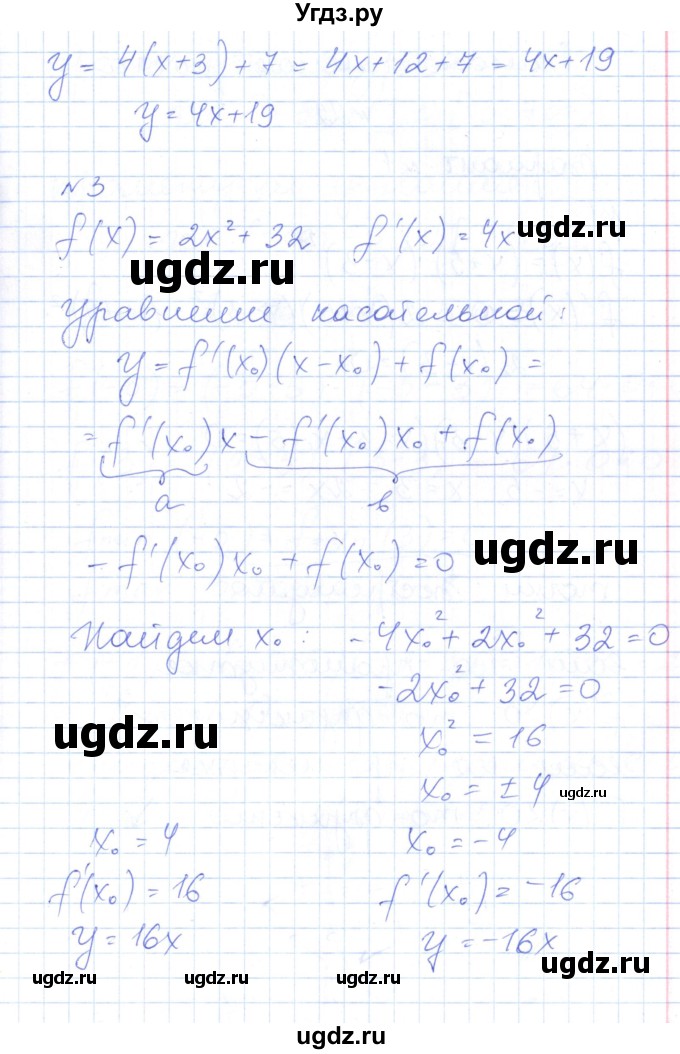 Угдз.ру
y = 4(x+3)+7 = 4x+12+7 = 4x+19
y=4x+19
№3
f(x) = 2x²+32 f'(x)=4x
ugdz.ru
ugdz.ru
Уравнение касательной:
y=f'(x₀)(x-x₀)+f(x₀) =
=f'(x₀)x - f'(x₀)x₀ + f(x₀)
a в
-f'(x₀)x₀+f(x₀)=0
ugdz.ru
Найдем x₀: -4x₀²+2x₀²+32=0
-2x₀²+32=0
ugdz.ru
x₀²=16
x₀=±4
ugdz.ru
x₀=4 x₀=-4
f'(x₀)=16 f'(x₀)=-16
y=16x y=-16x
ugdz.ru ugdz.ru ugdz.ru
ugdz.ru